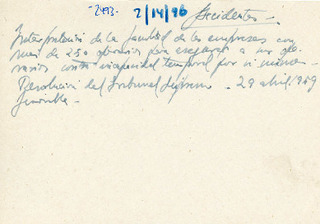 2493. 2/14/96 Accidentes.-
Interpretación de la facultad de las empresas con
más de 250 obreros para asegurar a sus ope-
rarios contra incapacidad temporal por sí mismas.-
Resolución del Tribunal Supremo - 29 abril 1959